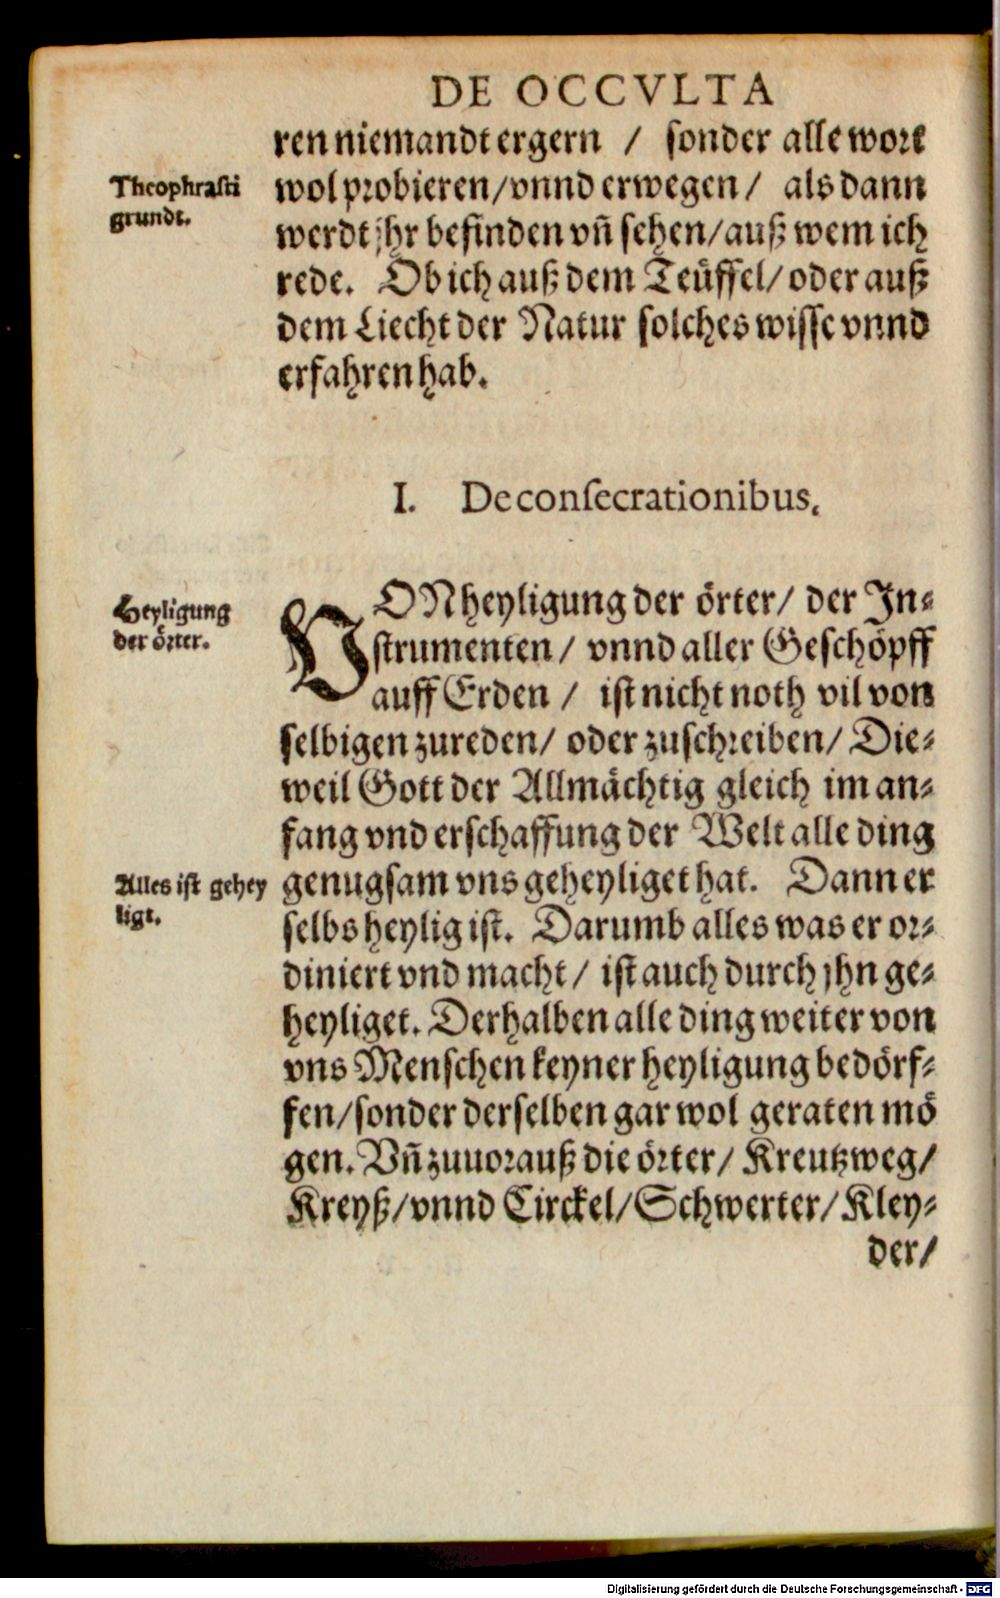 DE OCCVLTA
ren niemandt ergern / sonder alle wort
Theophrasti
grundt.
wol probieren/vnnd erwegen / als dann
werdt jhr befinden vñ sehen/auß wem ich
rede. Ob ich auß dem Teüffel/ oder auß
dem Liecht der Natur solches wisse vnnd
erfahren hab.
I. De conſecrationibus.
Heyligung
der örter.
VON heyligung der örter/ der In⸗
strumenten / vnnd aller Geschöpff
auff Erden / ist nicht noth vil von
selbigen zureden/ oder zuschreiben/ Die⸗
weil Gott der Allmächtig gleich im an⸗
fang vnd erschaffung der Welt alle ding
Alles ist gehey
ligt.
genugsam vns geheyliget hat. Dann er
selbs heylig ist. Darumb alles was er or⸗
diniert vnd macht / ist auch durch jhn ge⸗
heyliget. Derhalben alle ding weiter von
vns Menschen keyner heyligung bedörf⸗
fen/sonder derselben gar wol geraten mö
gen. Vñ zuuorauß die örter/ Kreutzweg/
Kreyß/vnnd Circkel/Schwerter/Kley⸗
der/
Digitalisierung gefördert durch die Deutsche Forschungsgemeinschaft - DFG